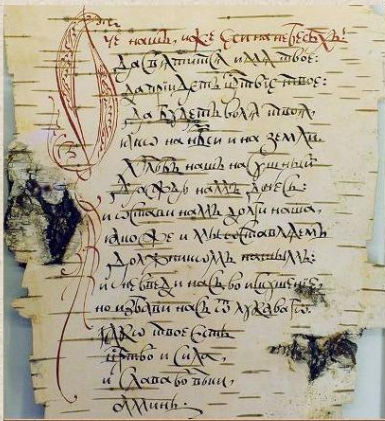 Отче нашъ, иже еси на небесѣхъ!
да свѧтитсѧ имѧ твое:
да приидетъ црⷭ҇твїе твое:
да будетъ волѧ твоѧ,
ꙗкѡ на нб҃си и на земли.
Хлѣбъ нашъ насущный
даждь намъ днесь:
и ѡстави намъ долги наша,
ꙗкоже и мы ѡставлѧемъ
должникѡмъ нашымъ:
и не введи насъ во искушенїе,
но избави насъ ѿ лукавагѡ.
ꙗкѡ твое есть
црⷭ҇тво и сила,
и слава во вѣки,
аминь.